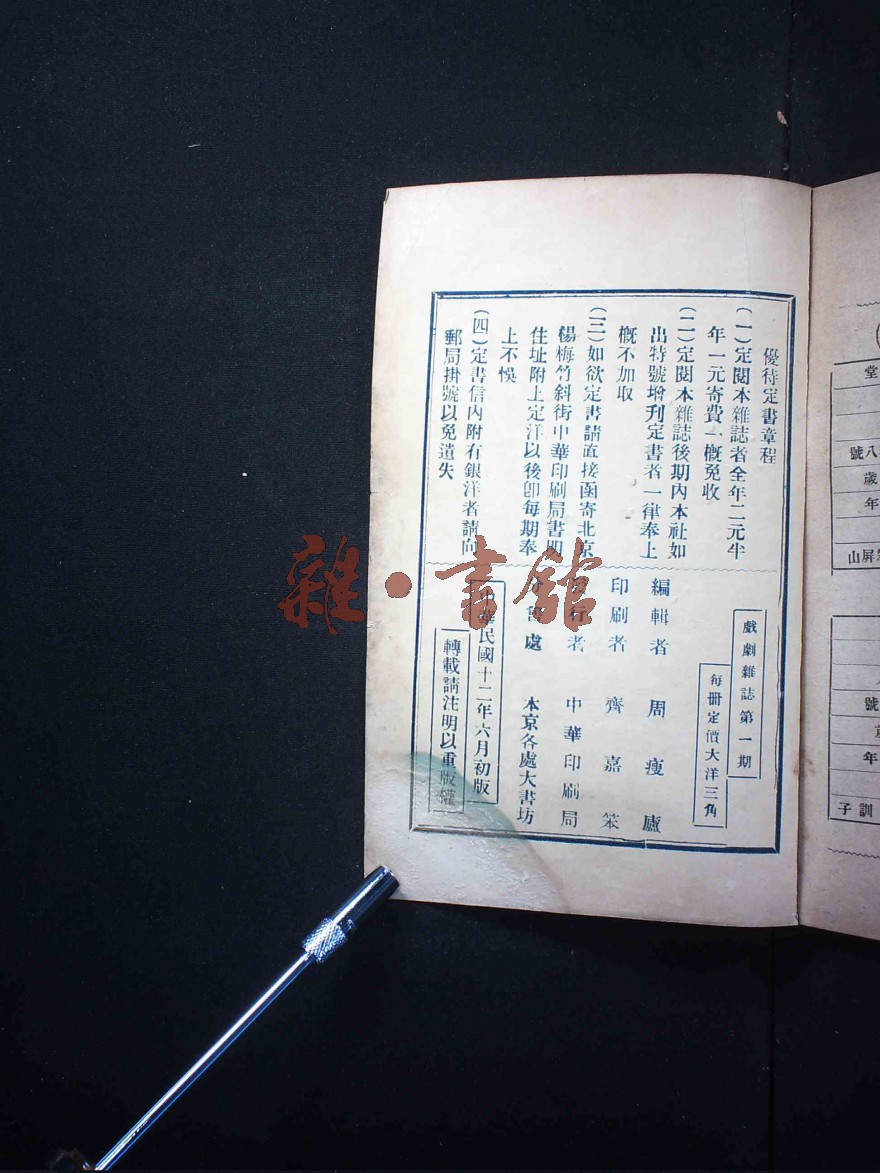 優待定書章程
(一)定閱本雜誌者全年二元半
年一元寄費一概免收
(二)定閱本雜誌後期內本社如
出特號增刊定書者一律奉上
概不加取
(三)如欲定書請直接函寄北京
楊梅竹斜街中華印刷局書明
住址附上定洋以後卽每期奉
上不悞
(四)定書信內附有銀洋者請向
郵局掛號以免遺失
戲劇雜誌第一期
每冊定價大洋三角
編輯者 周瘦廬
印刷者 齊嘉笨
發行者 中華印刷局
分售處 本京各處大書坊
中華民國十二年六月初版
轉載請注明以重版權
堂
八號
歲
年
屏山
號
年
訓子
雜·書館